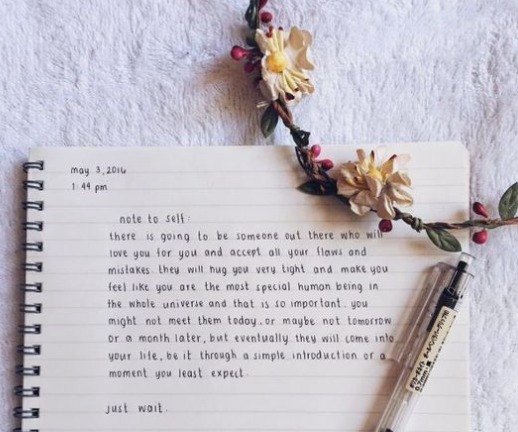 may 3, 2016
1:44 pm
note to self:
there is going to be someone out there who will
love you for you and accept all your flaws and
mistakes. they will hug you very tight and make you
feel like you are the most special human being in
the whole universe and that is so important. you
might not meet them today. or maybe not tomorrow
or a month later, but eventually. they will come into
your life, be it through a simple introduction or a
moment you least expect.
just wait.